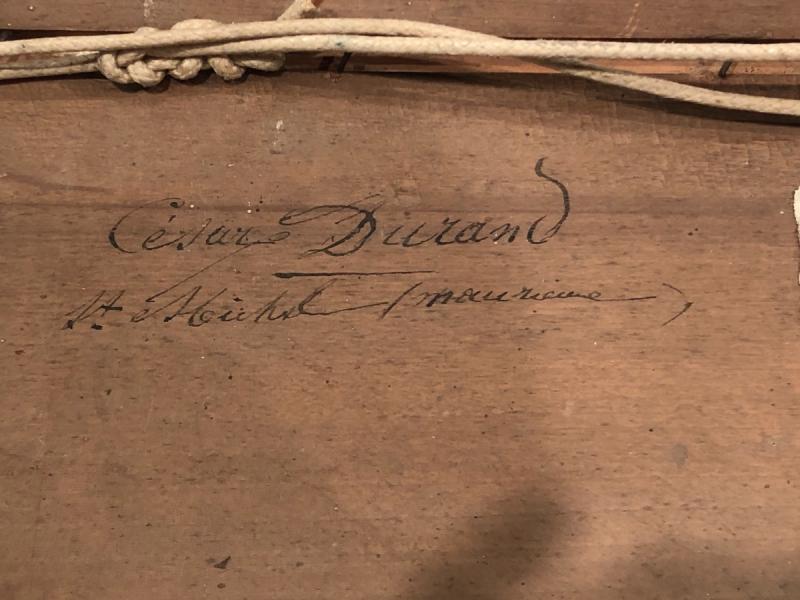 César Durand
St. Michel (maurienne)